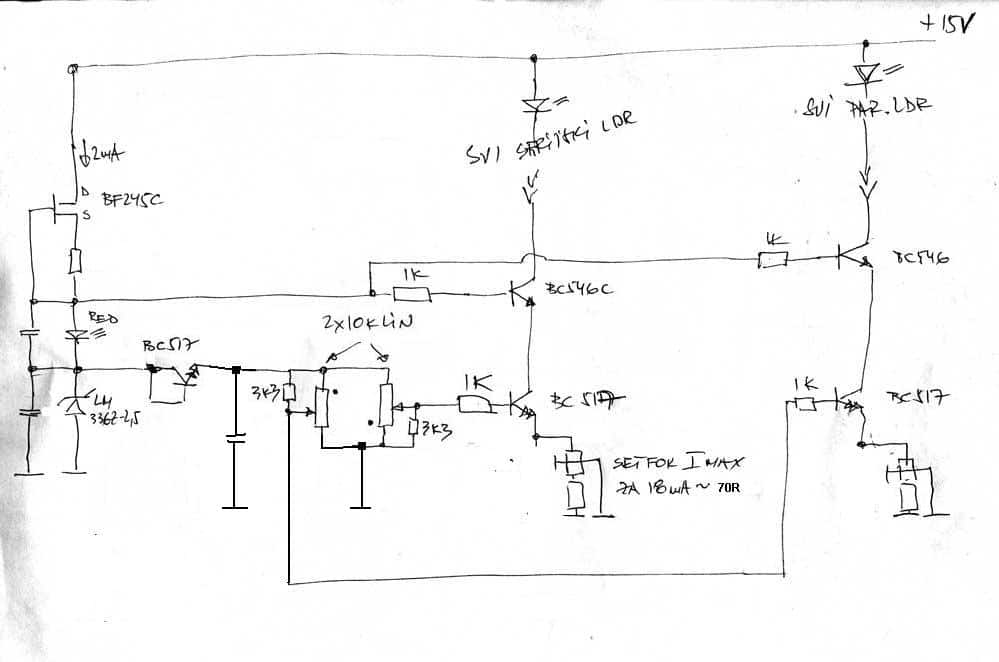 +15V
SVI SERIJSKI LDR
SVI PAR. LDR
2mA
D
BF245C
S
1K
1K
BC546
BC546C
RED
2x10K LIN
BC517
LM
336Z-2,5
3K3
1K
BC517
3K3
1K
BC517
SET FOR I MAX
ZA 18mA ~ 70R